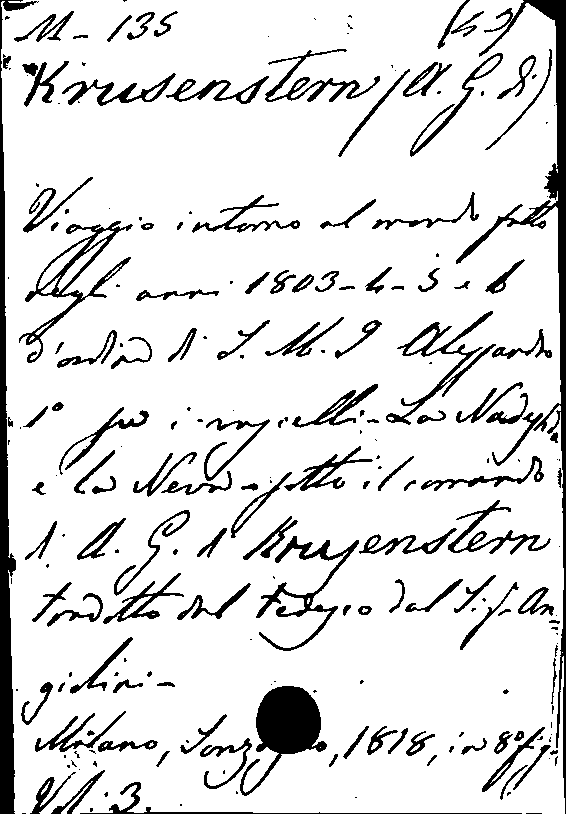 M - 135 (53)
Krusenstern (A. G. di)
Viaggio intorno al mondo fatto
negli anni 1803-4-5 e 6
d'ordine di S. M. I Alessandro
1° su i vascelli - La Nadeshda
e la Neva - sotto il comando
di A. G. di Krusenstern
tradotto dal tedesco dal Sig. An=
giolini -
Milano, Sonzogno, 1818, in 8° fig.
Vol: 3.